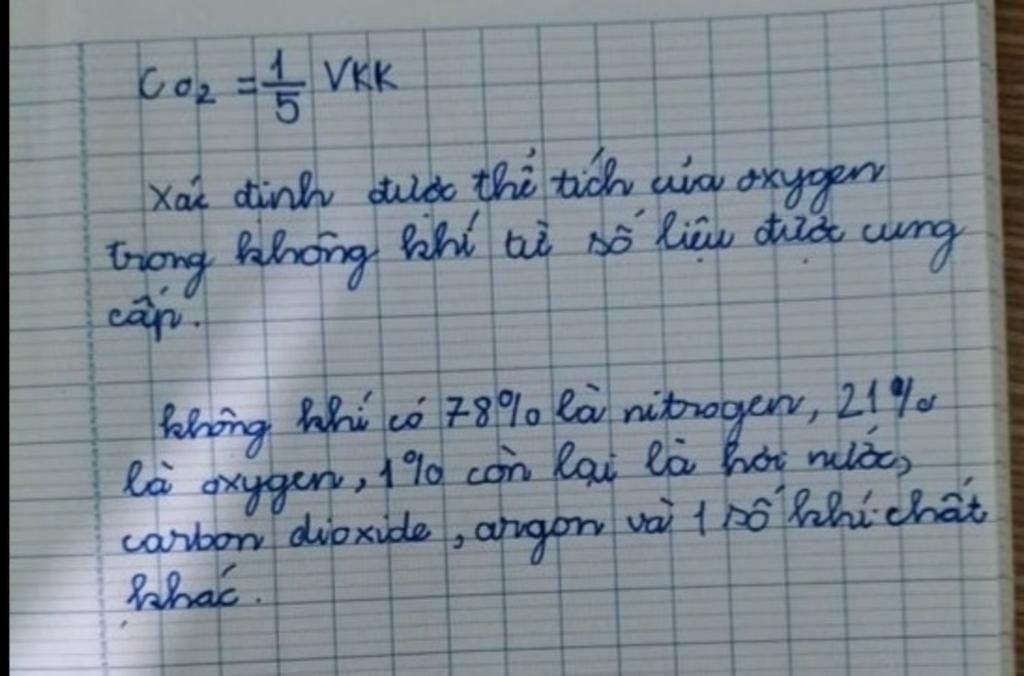 CO₂ = 1/5 VKK
Xác định được thể tích của oxygen
trong không khí từ số liệu được cung
cấp.
không khí có 78% là nitrogen, 21%
là oxygen, 1% còn lại là hơi nước,
carbon dioxide, argon và 1 số khí chất
khác.